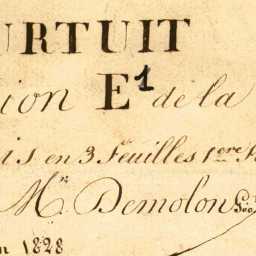 URTUIT
ion E1 de la
is en 3 Feuilles 1ere
Mr Demolon Géo
n 1828